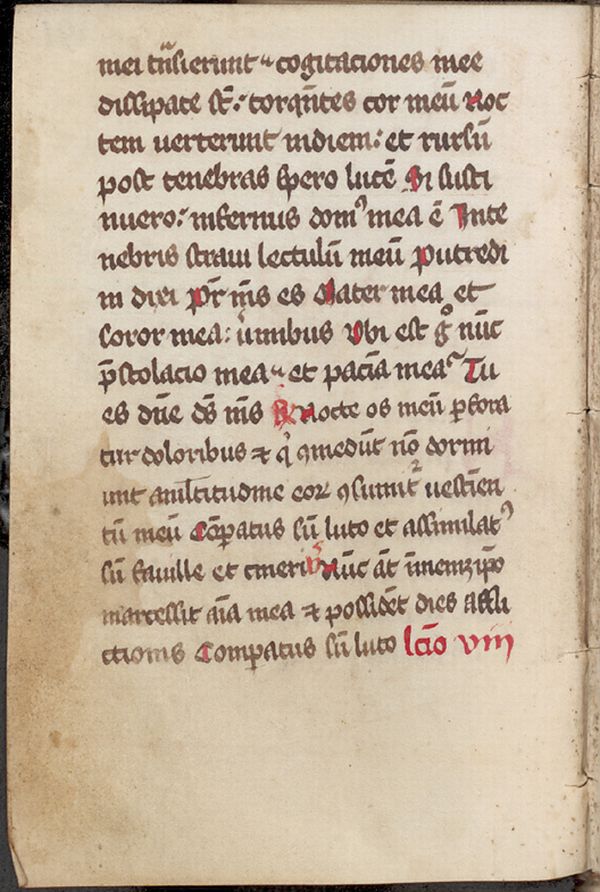 mei tn̄sierunt · cogitaciones mee
dissipate st̄ : torqn̄tes cor meū Noc
tem uerterunt indiem : et rursū
post tenebras spero lucē Si susti
nuero : infernus dom᷒ mea ē Inte
nebris straui lectulū meū Putredi
ni dixi pr̄ m̄s es Mater mea et
soror mea : uͥmibus Vbi est gͦ nūc
p̄stolacio mea · et pacīa mea Tu
es dn̄e ds̄ m̄s R̸ Nocte os meū ꝑfora
tur doloribus ⁊ qͥ ꝯmedūt nō dormi
unt amltitudine eoꝝ ꝯsumit᷑ uestimen
tū meū Cōꝑatus sū luto et assimilat᷒
sū fauille et cineri V̸ Nūc āt īmemꝫip̄o
marcessit aīa mea ⁊ possidēt dies affli
ctionis Comꝑatus sū luto lcīo viii